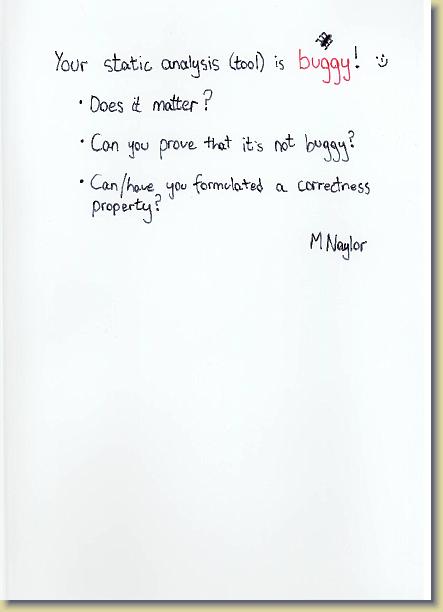 Your static analysis (tool) is buggy!
• Does it matter?
• Can you prove that it's not buggy?
• Can/have you formulated a correctness
property?
M Naylor